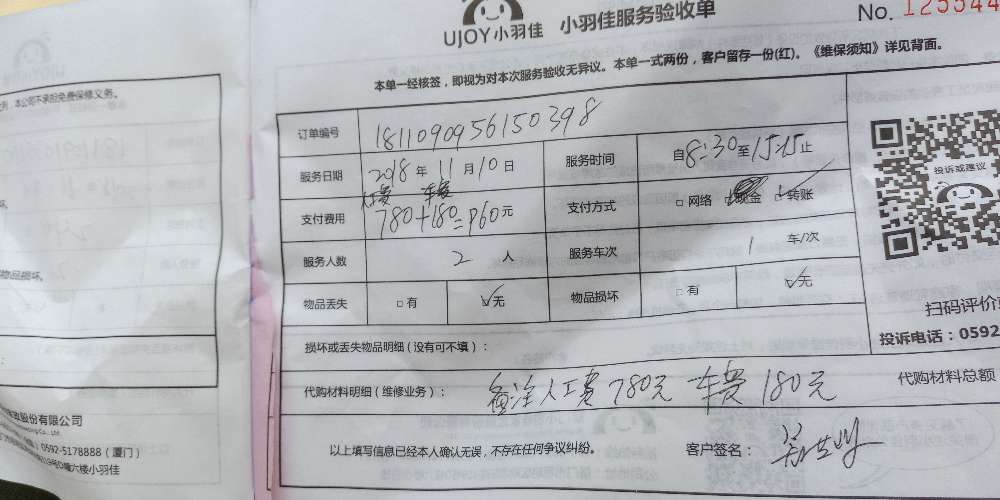 UJOY小羽佳 小羽佳服务验收单
No. 125544
本单一经核签，即视为对本次服务验收无异议。本单一式两份，客户留存一份(红)。《维保须知》详见背面。
本公司不承担免费保修义务。
订单编号 1811090956150398
服务日期 2018年11月10日 服务时间 自8:30至15:15止
人工费 车费
支付费用 780+180=960元 支付方式 □网络 □现金 ☑转账
服务人数 2人 服务车次 1车/次
物品丢失 □有 ☑无 物品损坏 □有 ☑无
投诉或建议
扫码评价
投诉电话：0592
物品损坏.
损坏或丢失物品明细（没有可不填）：
代购材料明细（维修业务）： 备注人工费780元 车费180元
代购材料总额
以上填写信息已经本人确认无误，不存在任何争议纠纷。 客户签名：
股份有限公司
0592-5178888（厦门）
幢六楼小羽佳